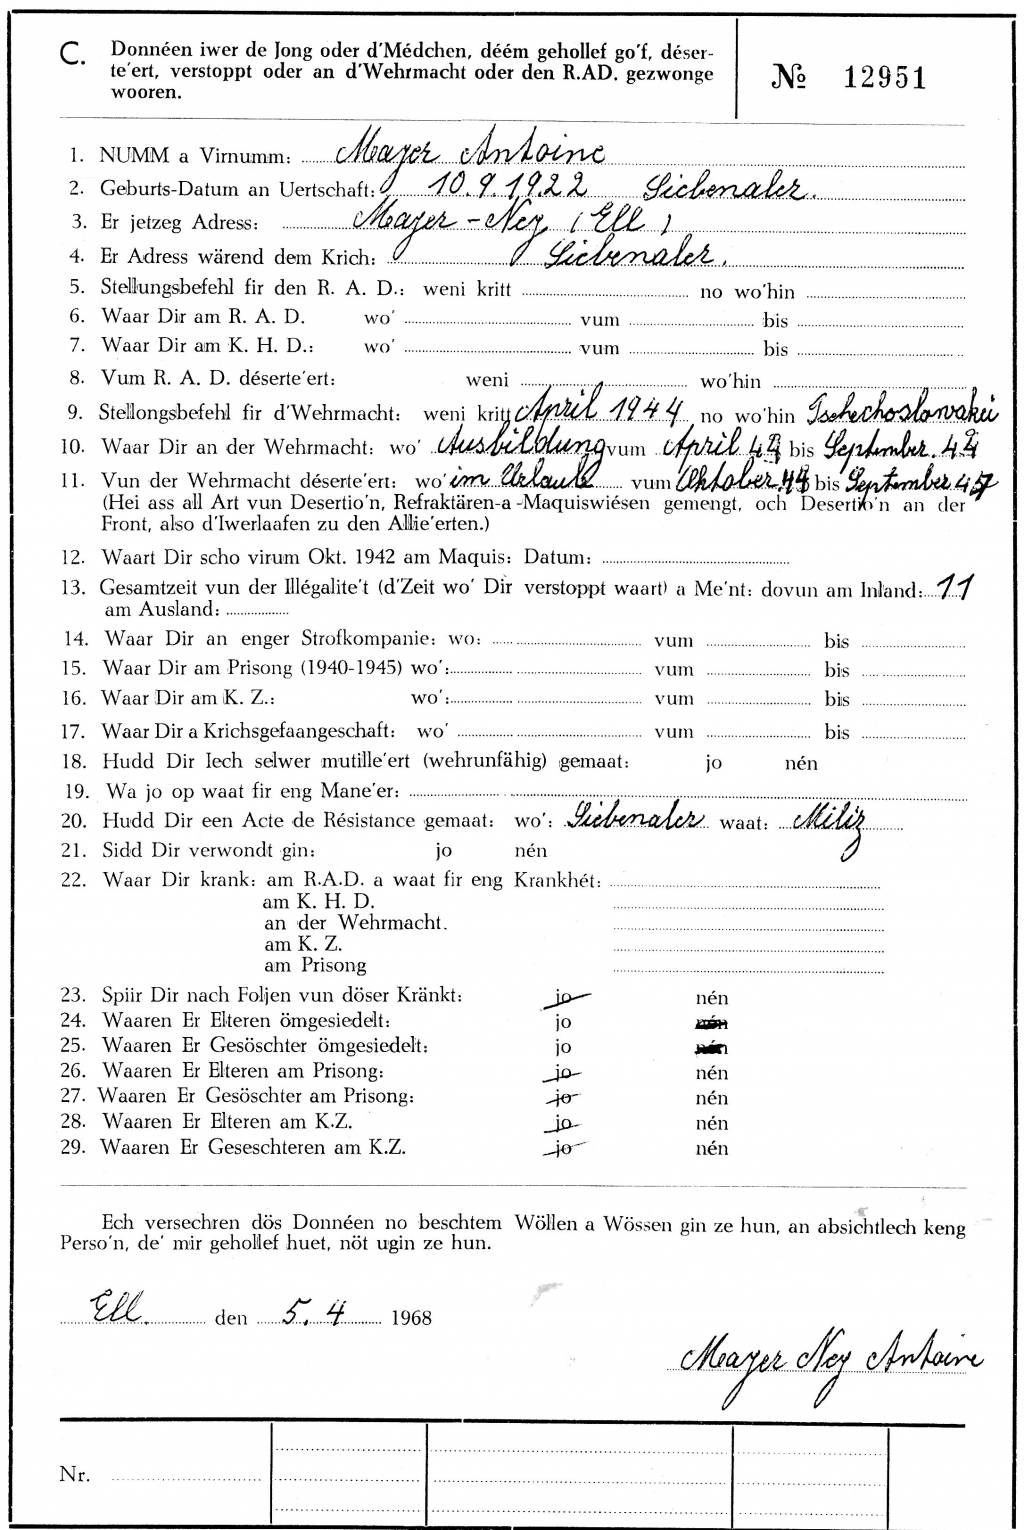 C. Donnéen iwer de Jong oder d'Médchen, déém gehollef go'f, déser-
te'ert, verstoppt oder an d'Wehrmacht oder den R.AD. gezwonge
wooren.
№ 12951
1. NUMM a Virnumm: Mayer Antoine
2. Geburts-Datum an Uertschaft: 10.9.1922 Siebenaler.
3. Er jetzeg Adress: Mayer - Ney (Ell)
4. Er Adress wärend dem Krich: Siebenaler.
5. Stellungsbefehl fir den R. A. D.: weni kritt no wo'hin
6. Waar Dir am R. A. D. wo' vum bis
7. Waar Dir am K. H. D.: wo' vum bis
8. Vum R. A. D. déserte'ert: weni wo'hin
9. Stellongsbefehl fir d'Wehrmacht: weni kritt April 1944 no wo'hin Tschechoslowakei
10. Waar Dir an der Wehrmacht: wo' Ausbildung vum April 44 bis September. 44
11. Vun der Wehrmacht déserte'ert: wo' im Urlaub vum Oktober 44 bis September 45
(Hei ass all Art vun Desertio'n, Refraktären-a -Maquiswiésen gemengt, och Desertio'n an der
Front, also d'Iwerlaafen zu den Allie'erten.)
12. Waart Dir scho virum Okt. 1942 am Maquis: Datum:
13. Gesamtzeit vun der Illégalite't (d'Zeit wo' Dir verstoppt waart) a Me'nt: dovun am Inland: 11
am Ausland:
14. Waar Dir an enger Strofkompanie: wo: vum bis
15. Waar Dir am Prisong (1940-1945) wo': vum bis
16. Waar Dir am K. Z.: wo': vum bis
17. Waar Dir a Krichsgefaangeschaft: wo' vum bis
18. Hudd Dir Iech selwer mutille'ert (wehrunfähig) gemaat: jo nén
19. Wa jo op waat fir eng Mane'er:
20. Hudd Dir een Acte de Résistance gemaat: wo': Siebenaler waat: Miliz
21. Sidd Dir verwondt gin: jo nén
22. Waar Dir krank: am R.A.D. a waat fir eng Krankhét:
am K. H. D.
an der Wehrmacht.
am K. Z.
am Prisong
23. Spiir Dir nach Foljen vun döser Kränkt: jo nén
24. Waaren Er Elteren ömgesiedelt: jo nén
25. Waaren Er Gesöschter ömgesiedelt: jo nén
26. Waaren Er Elteren am Prisong: jo nén
27. Waaren Er Gesöschter am Prisong: jo nén
28. Waaren Er Elteren am K.Z. jo nén
29. Waaren Er Geseschteren am K.Z. jo nén
Ech versechren dös Donnéen no beschtem Wöllen a Wössen gin ze hun, an absichtlech keng
Perso'n, de' mir gehollef huet, nöt ugin ze hun.
Ell. den 5. 4 1968
Mayer Ney Antoine
Nr.